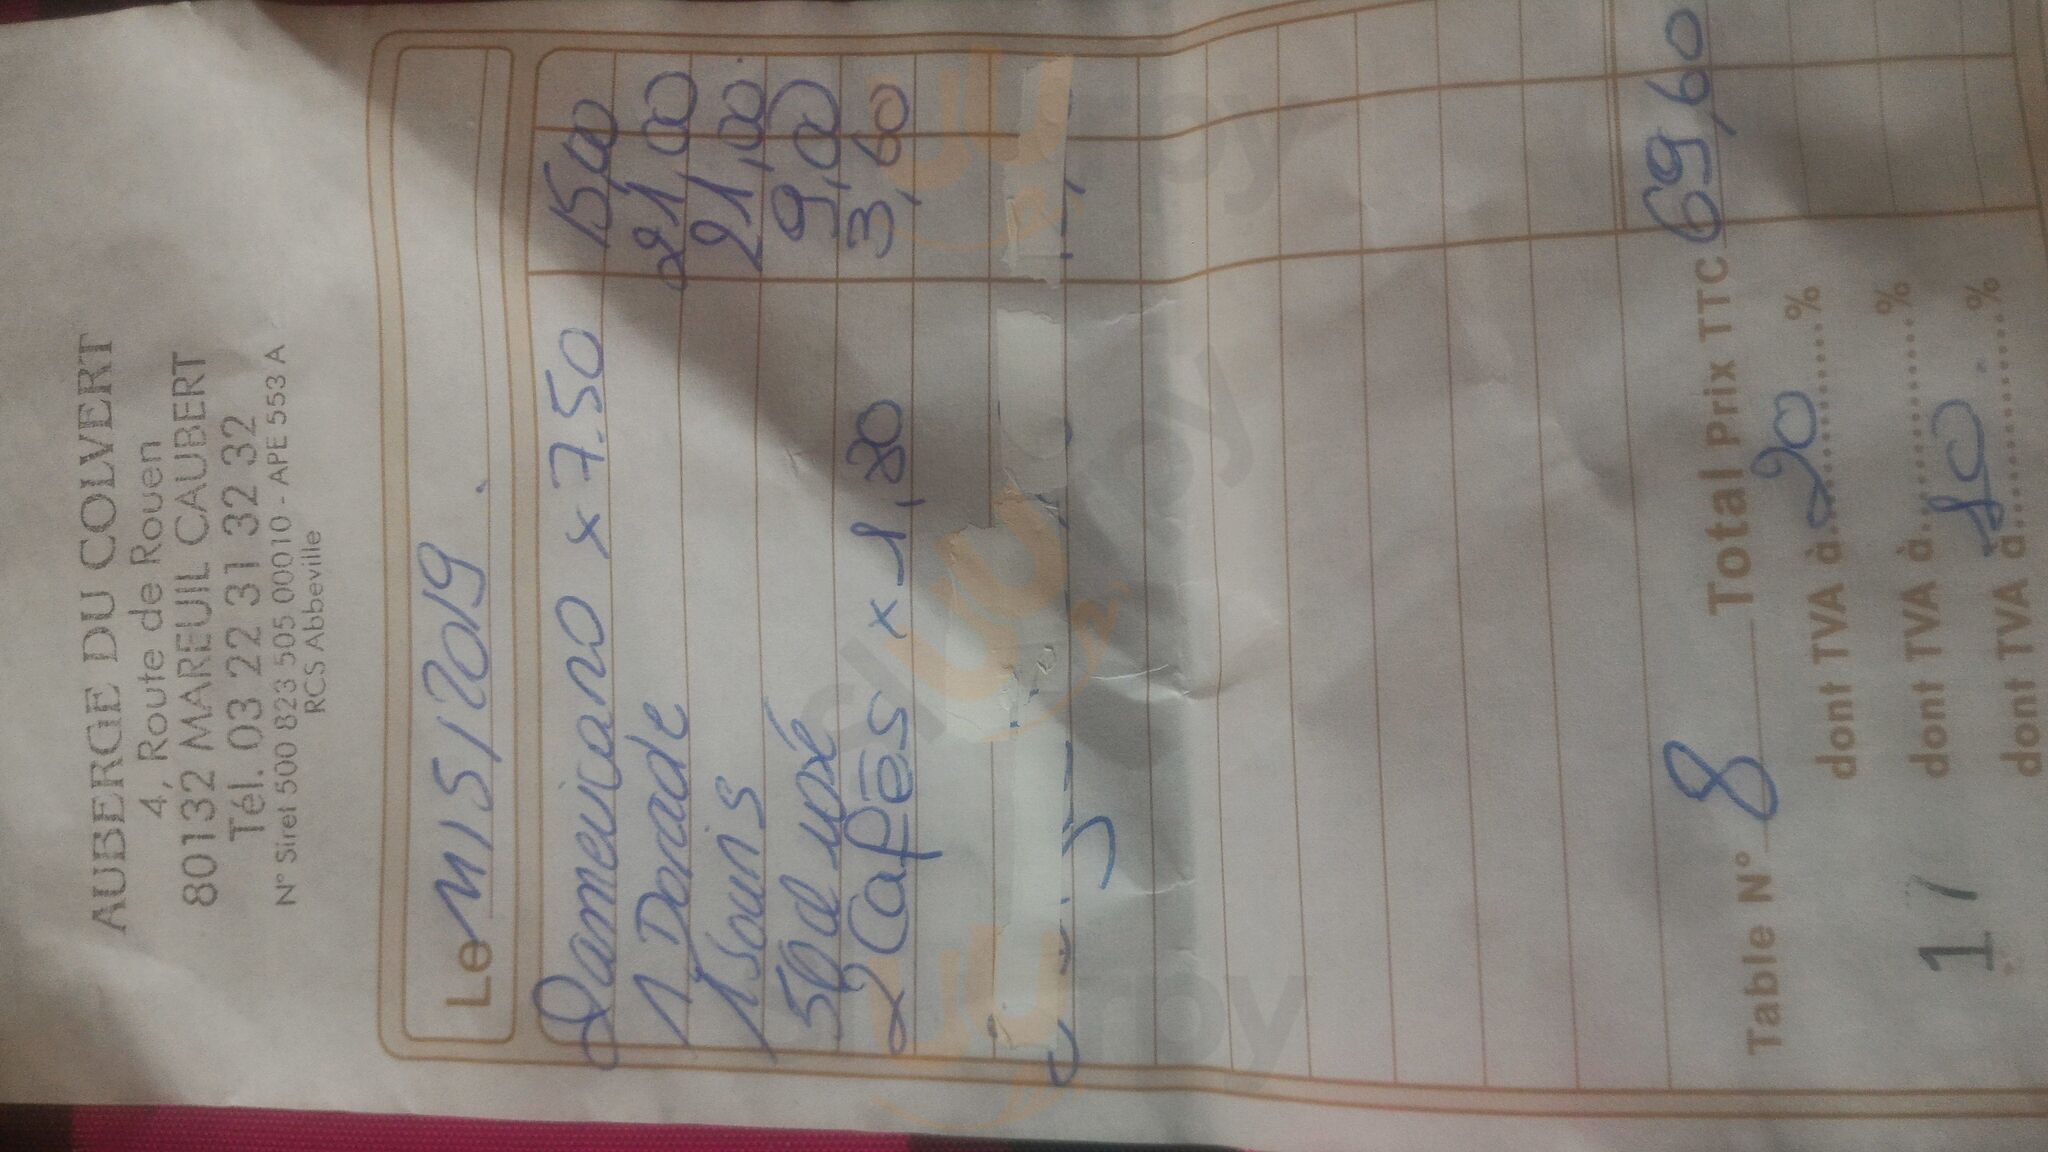 AUBERGE DU COLVERT
4, Route de Rouen
80132 MAREUIL CAUBERT
Tél. 03 22 31 32 32
N° Siret 500 823 505 00010 - APE 553 A
RCS Abbeville
Le 11/5/2019.
2 americano x 7.50 15,00
1 Dorade 21,00
1 21,00
50cl rosé 9,00
2 Cafés x 1,80 3,60
Table N° 8 Total Prix TTC 69,60
dont TVA à 20 %
dont TVA à %
dont TVA à 10 %
17